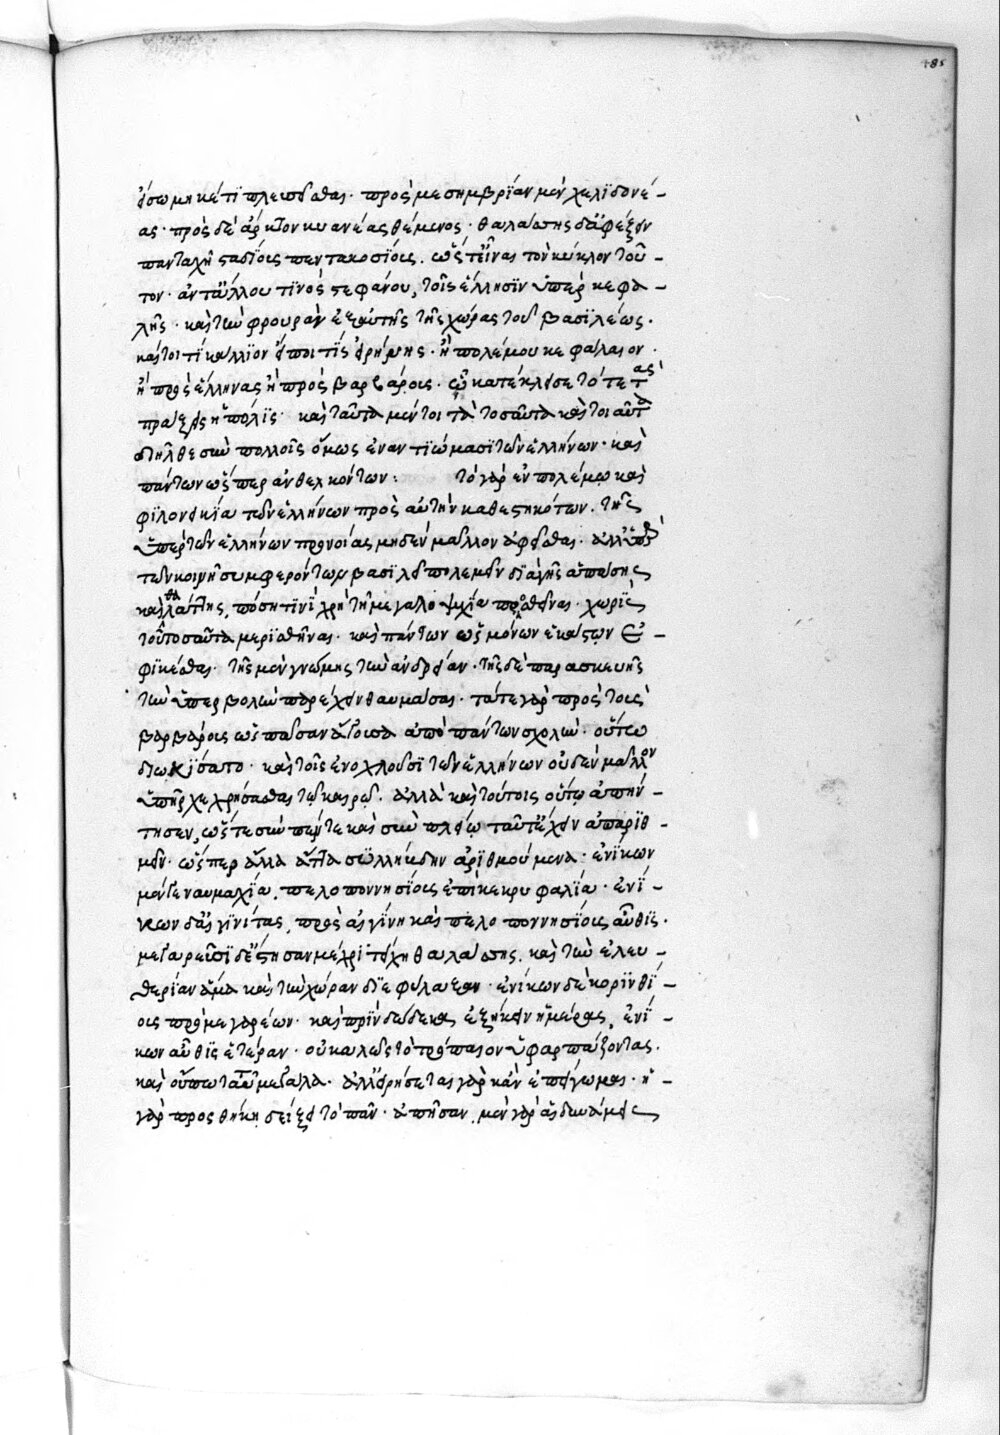 185
εἴσω μηκέτι πλεῖσθαι· πρὸς μεσημβρίαν μὲν χελιδονέ-
ας· πρὸς δὲ ἄρκτον κυανέας θέμενος· θαλάσσης δ' ἀφέξειν
πανταχῆ σταδίοις πεντακοσίοις. ὥστ' εἶναι τὸν κύκλον τοῦ-
τον· ἀντ' ἄλλου τινὸς στεφάνου, τοῖς ἕλλησιν ὑπὲρ κεφα-
λῆς· καὶ τὴν φρουρὰν ἐξ αὐτῆς τῆς χώρας τοῦ βασιλέως.
καίτοι τί κάλλιον εἴποι τις εἰρήνης· ἢ πολέμου κεφάλαιον·
ἢ πρὸς ἕλληνας ἢ πρὸς βαρβάρους· ᾧ κατέκλεισε τότε τὰς
πράξεις ἡ πόλις· καὶ ταῦτα μέντοι τὰ τοσαῦτα καὶ τοιαῦτα
διῆλθε σὺν πολλοῖς ὅμως ἐναντιώμασι τῶν ἑλλήνων· καὶ
πάντων ὥσπερ ἀνθελκόντων: τὸ γὰρ ἐν πολέμω καὶ
φιλονεικία τῶν ἑλλήνων πρὸς αὐτὴν καθεστηκότων. τῆς
ὑπὲρ τῶν ἑλλήνων προνοίας μηδὲν μᾶλλον ἀφεῖσθαι. ἀλλ' ὑπὲρ
τῶν κοινῆ συμφερόντων βασιλεῖ πολεμεῖν διὰ γῆς ἁπάσης
καὶ θαλάττης, πόση τινὶ χρὴ τῆ μεγαλοψυχία προσθεῖναι· χωρὶς
τοῦ τοσαῦτα μερισθῆναι· καὶ πάντων ὡς μόνων ἑκάστων ἐ-
φικέσθαι· τῆς μὲν γνώμης τὴν ἀνδρείαν· τῆς δὲ παρασκευῆς
τὴν ὑπερβολὴν παρεῖχεν θαυμάσαι· τά τε γὰρ πρὸς τοὺς
βαρβάρους ὡς πᾶσαν ἄγουσα ἀπὸ πάντων σχολὴν· οὕτω
διωκίσατο· καὶ τοῖς ἐνοχλοῦσι τῶν ἑλλήνων οὐδὲν μᾶλλον
ὑπῆρχε χρήσασθαι τῷ καιρῷ. ἀλλὰ καὶ τούτοις οὕτω ἀπήν-
τησεν, ὥστε σὺν πέντε καὶ σὺν πλείω ταῦτ' ἔχειν ἀπαριθ-
μεῖν· ὥσπερ ἄλλα ἄττα συλλήβδην ἀριθμούμενα· ἐνίκων
μέν γε ναυμαχία, πελοποννησίους ἐπὶ κεκρυφαλία· ἐνί-
κων δ' αἰγινίτας, πρὸς αἰγίνη καὶ πελοποννησίους αὖθις·
μεγαρεῦσι δ' ἔστησαν μέχρι τείχη θαλάσσης. καὶ τὴν ἐλευ-
θερίαν ἅμα καὶ τὴν χώραν διεφύλαξαν· ἐνίκων δὲ κορινθί-
ους πρὸ μεγαρέων· καὶ πρὶν δώδεκα ἐξήκειν ἡμέρας, ἐνί-
κων αὖθις ἑτέραν· οὐ καλῶς τὸ τρόπαιον ὑφαρπάζοντας.
καὶ οὔπω ταῦτα μεγάλα· ἀλλ' εἰρήσεται γὰρ κἂν ἐπείγωμαι· ἡ-
γὰρ προσθήκη δείξει τὸ πᾶν· ἀπῆσαν μὲν γὰρ αἱ δυνάμεις